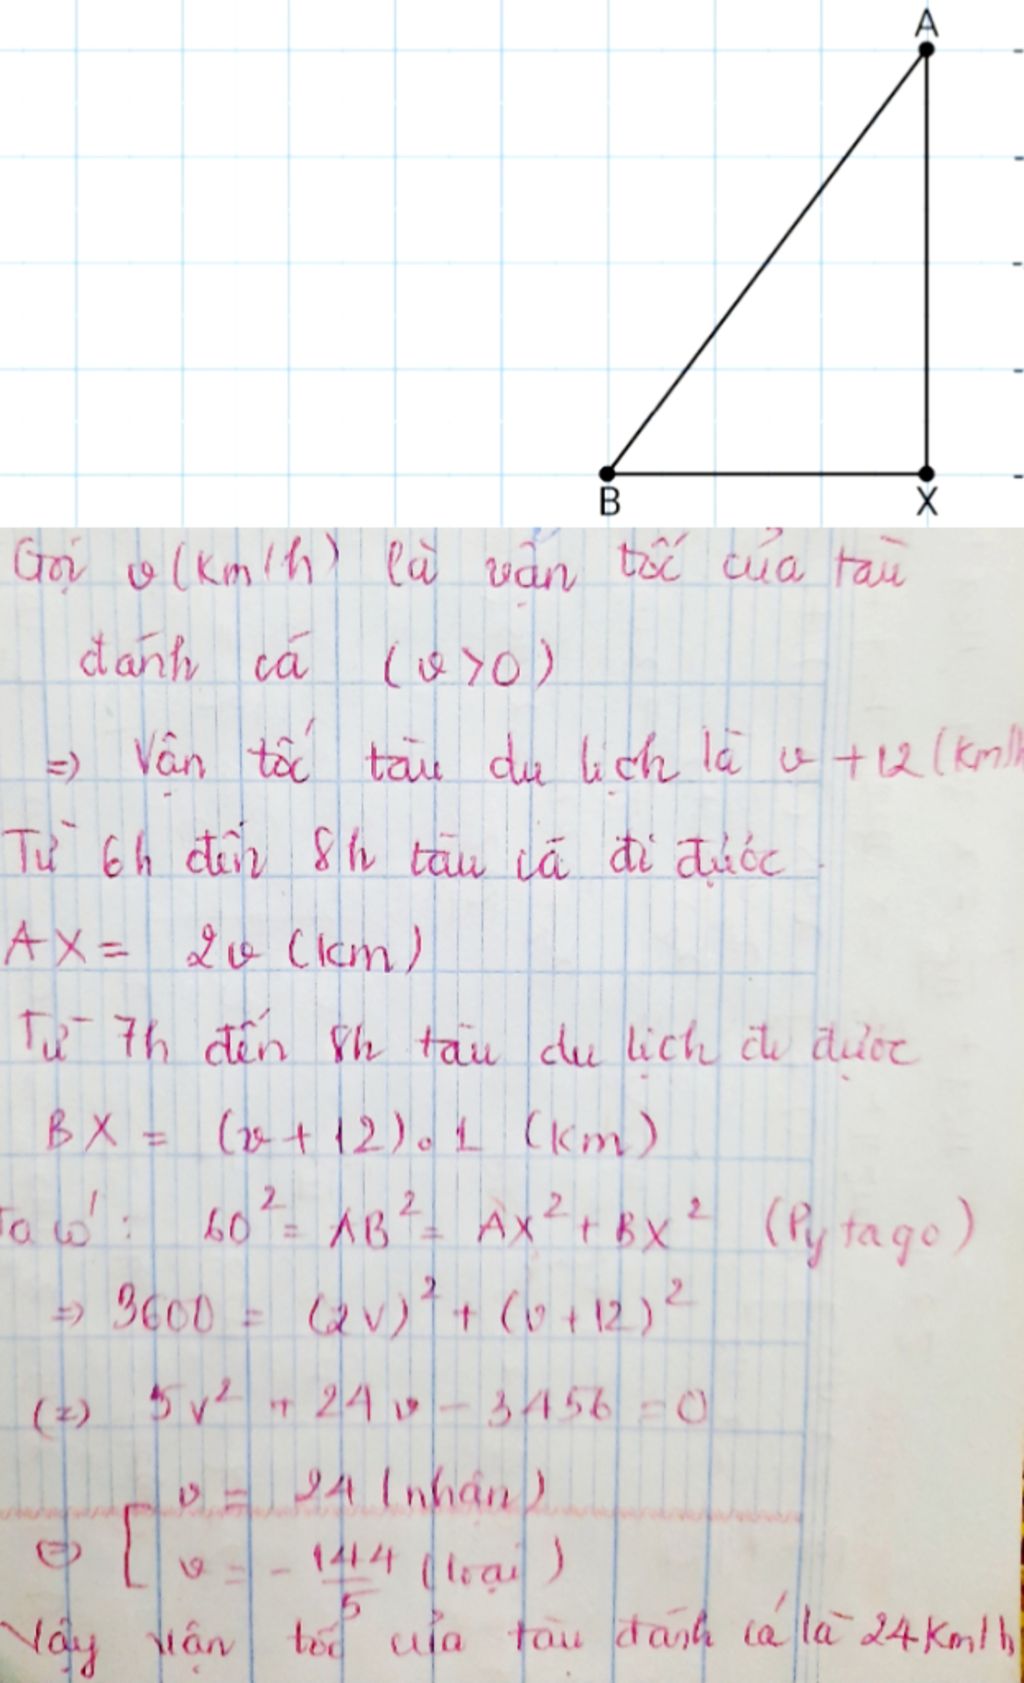 A
B
X
Gọi v (km/h) là vận tốc của tàu
đánh cá (v>0)
=> Vận tốc tàu du lịch là v + 12 (km/h
Từ 6h đến 8h tàu cá đi được
AX = 2v (km)
Từ 7h đến 8h tàu du lịch đi được
BX = (v + 12).1 (km)
Ta có: 60² = AB² = AX² + BX² (Pytago)
=> 3600 = (2v)² + (v + 12)²
(=) 5v² + 24v - 3456 = 0
(=) [ v = 24 (nhận)
v = -144/5 (loại)
Vậy vận tốc của tàu đánh cá là 24 km/h